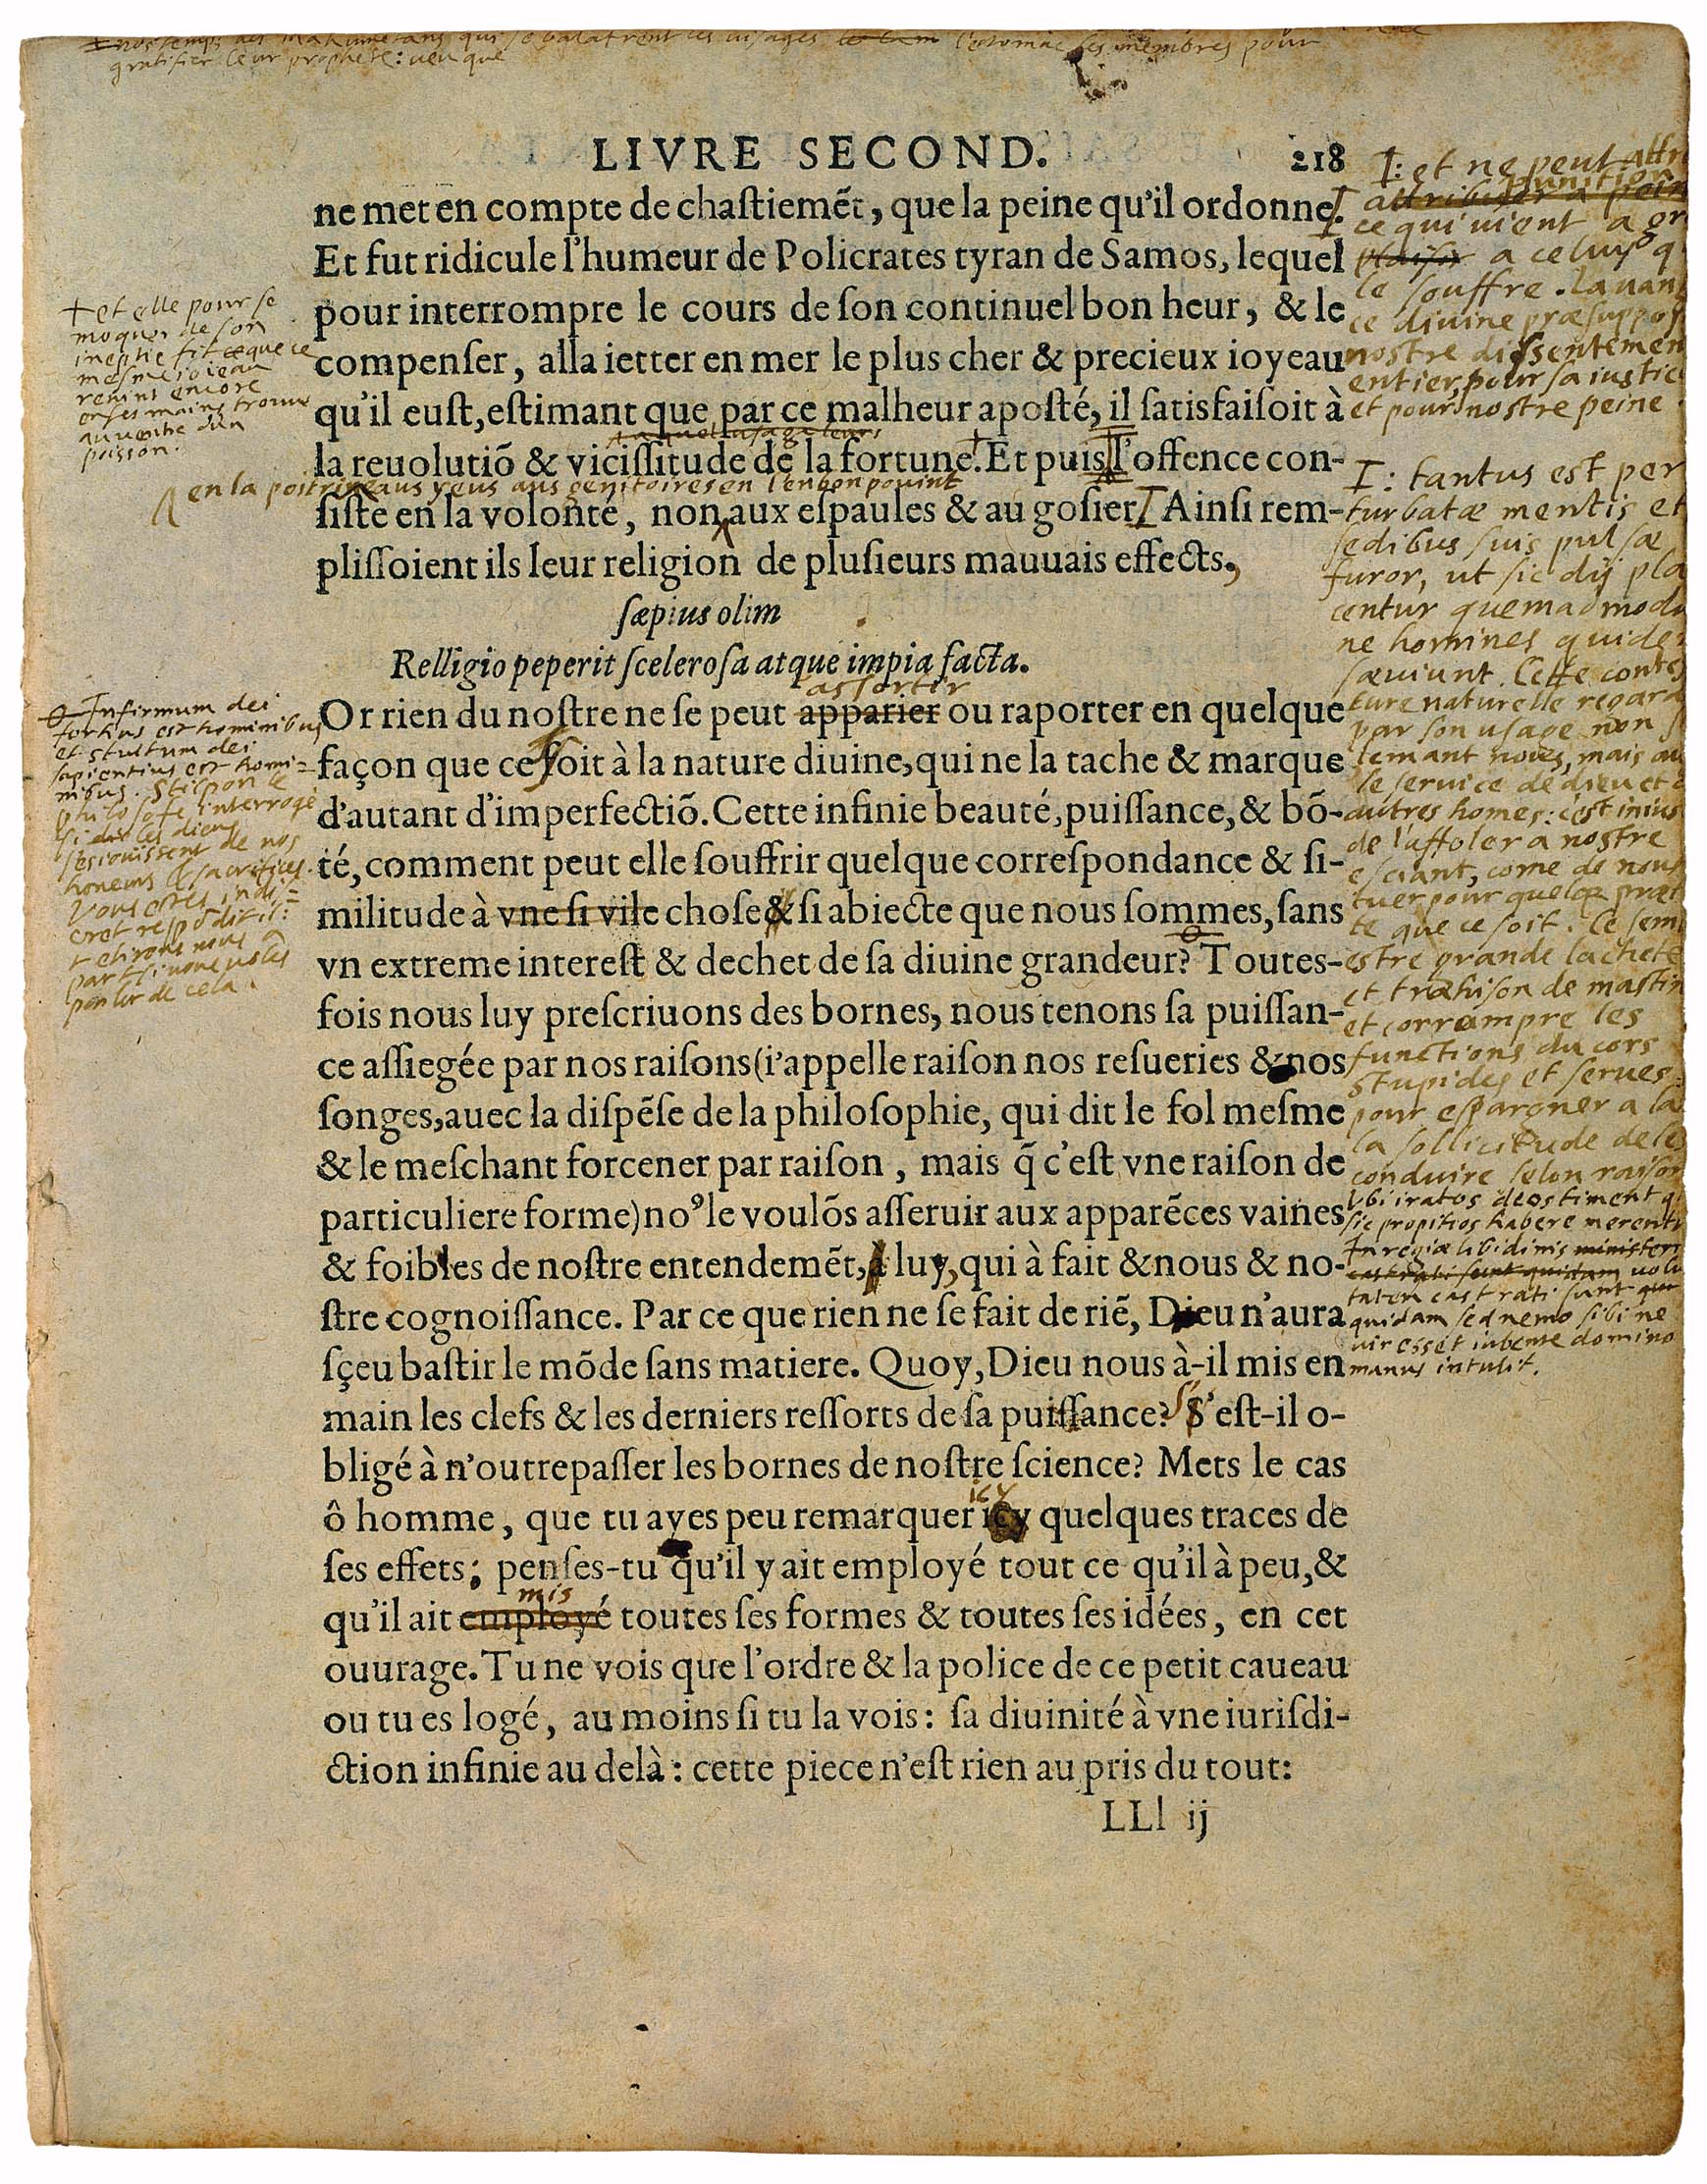 gratifier leur prophete: ueu que
LIVRE SECOND. 218
ne met en compte de chaſtiemẽt, que la peine qu'il ordonne.
Et fut ridicule l'humeur de Policrates tyran de Samos, lequel
pour interrompre le cours de ſon continuel bon heur, & le
compenſer, alla ietter en mer le plus cher & precieux ioyeau
qu'il euſt, eſtimant que par ce malheur apoſté, il ſatisfaiſoit à
la reuolutiõ & viciſſitude de la fortune. Et puis l'offence con-
en la poitrine aus yeus aus genitoires en l'enbonpouint
ſiſte en la volonté, non aux eſpaules & au goſier Ainſi rem-
pliſſoient ils leur religion de pluſieurs mauuais effects,
ſæpius olim
Relligio peperit ſceleroſa atque impia facta.
assortir
Or rien du noſtre ne ſe peut apparier ou raporter en quelque
façon que ce ſoit à la nature diuine, qui ne la tache & marque
d'autant d'imperfectiõ. Cette infinie beauté, puiſſance, & bõ-
té, comment peut elle ſouffrir quelque correſpondance & ſi-
militude à vne ſi vile choſe & ſi abiecte que nous ſommes, ſans
vn extreme intereſt & dechet de ſa diuine grandeur? Toutes-
fois nous luy preſcriuons des bornes, nous tenons ſa puiſſan-
ce aſſiegée par nos raiſons (i'appelle raiſon nos reſueries & nos
ſonges, auec la diſpẽſe de la philoſophie, qui dit le fol meſme
& le meſchant forcener par raiſon, mais q̃ c'eſt vne raiſon de
particuliere forme) noꝰ le voulõs aſſeruir aux apparẽces vaines
& foibles de noſtre entendemẽt, luy, qui à fait & nous & no-
ſtre cognoiſſance. Par ce que rien ne ſe fait de riẽ, Dieu n'aura
ſçeu baſtir le mõde ſans matiere. Quoy, Dieu nous à-il mis en
main les clefs & les derniers reſſorts de ſa puiſſance? S'eſt-il o-
bligé à n'outrepaſſer les bornes de noſtre ſcience? Mets le cas
icy
ô homme, que tu ayes peu remarquer icy quelques traces de
ſes effets; penſes-tu qu'il y ait employé tout ce qu'il à peu, &
mis
qu'il ait employé toutes ſes formes & toutes ſes idées, en cet
ouurage. Tu ne vois que l'ordre & la police de ce petit caueau
ou tu es logé, au moins ſi tu la vois: ſa diuinité à vne iuriſdi-
ction infinie au delà: cette piece n'eſt rien au pris du tout:
LLl ij
+ et elle pour se
moquer de son
ineptie fit que ce
mesme ioieau
reuint encore
en ses mains trouue
au uentre d'un
poisson.
Infirmum dei
fortius est hominibus
et stultum dei
sapientius est homi=
nibus. Stilpon le
philosofe interrogé
si les dieus
s'esiouissent de nos
honeurs & sacrifices.
Vous estes indis=
cret respõdit il:
retirons nous a
part si uous uolés
parler de cela.
I: et ne peut
ce qui uient a
plaisir a celuy q
le souffre. La uan
ce diuine præsuppos
nostre dissentemen
entier, pour sa iustice
et pour nostre peine
I: tantus est per
turbatæ mentis et
sedibus suis pulsæ
furor, ut sic dij pla
centur quemadmodũ
ne homines quide
sæuiunt. Cette contex
ture naturelle regarde
par son usage non s
lemant nous, mais au
le seruice de dieu et
autres homes: c'est inius
de l'affoler a nostre
esciant, come de nous
tuer pour quelque præt
te que ce soit. Ce sem
estre grande lacheté
et trahison de mastin
et corrompre les
functions du cors
stupides et serues
pour espargner a la
la sollicitude de les
conduire selon raison
Vbi iratos deos timent q
sic propitios habere merentu
In regiæ libidinis
uolu
tatem castrati sunt
quidam sed nemo sibi ne
uir esset iubente domino
manus intulit.